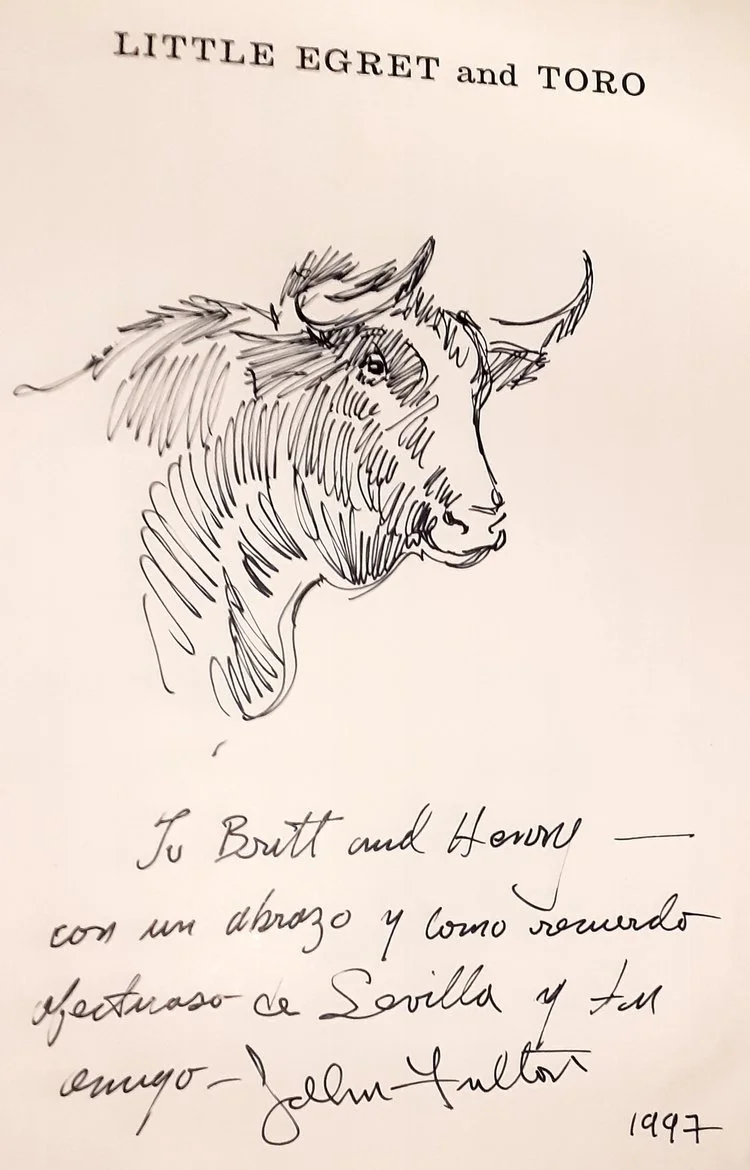 LITTLE EGRET and TORO
To Britt and Henry —
con un abrazo y como recuerdo
afectuoso de Sevilla y tu
amigo — John Fulton
1997